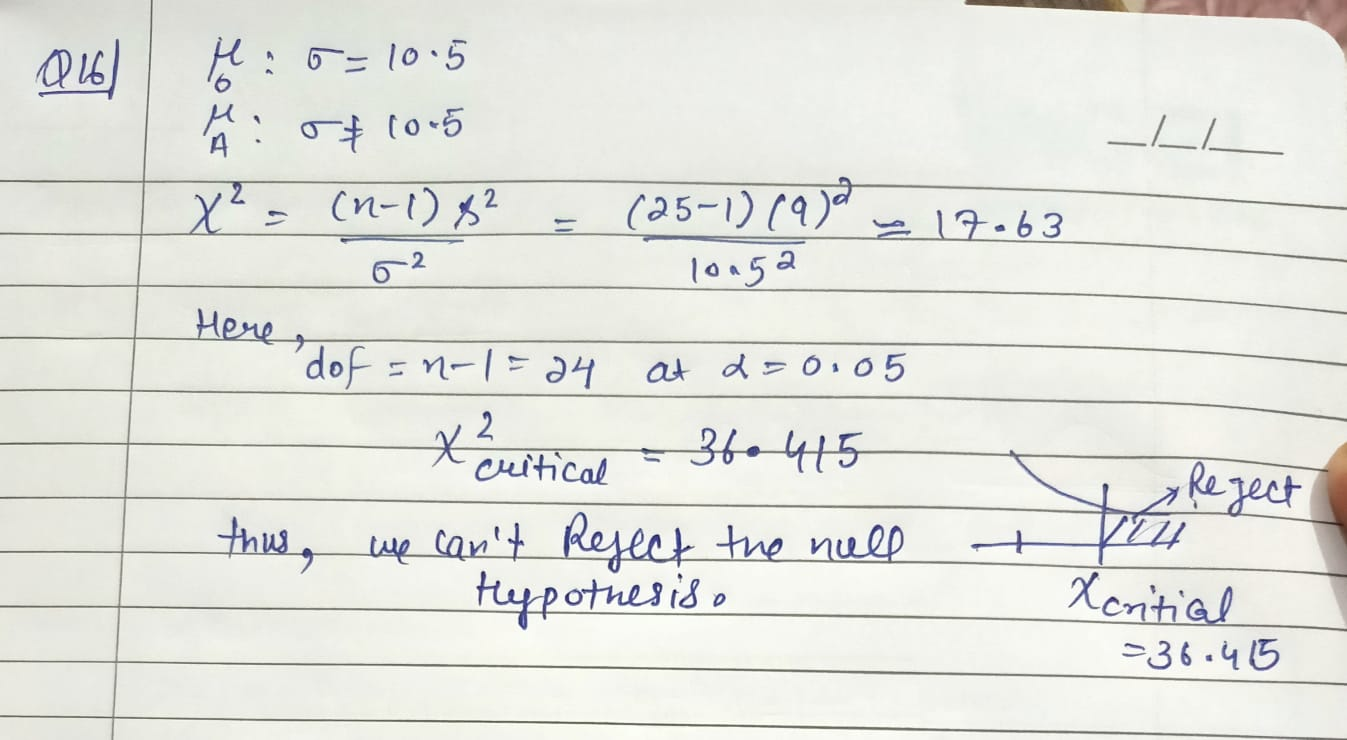 Q16)
H₀ : σ = 10.5
H_A : σ ≠ 10.5
_/_/_
χ² = (n-1) s² / σ² = (25-1) (9)² / 10.5² = 17.63
Here,
dof = n-1 = 24 at α = 0.05
χ² critical = 36.415
Reject
thus, we can't Reject the null
Hypothesis.
χ critial
= 36.415